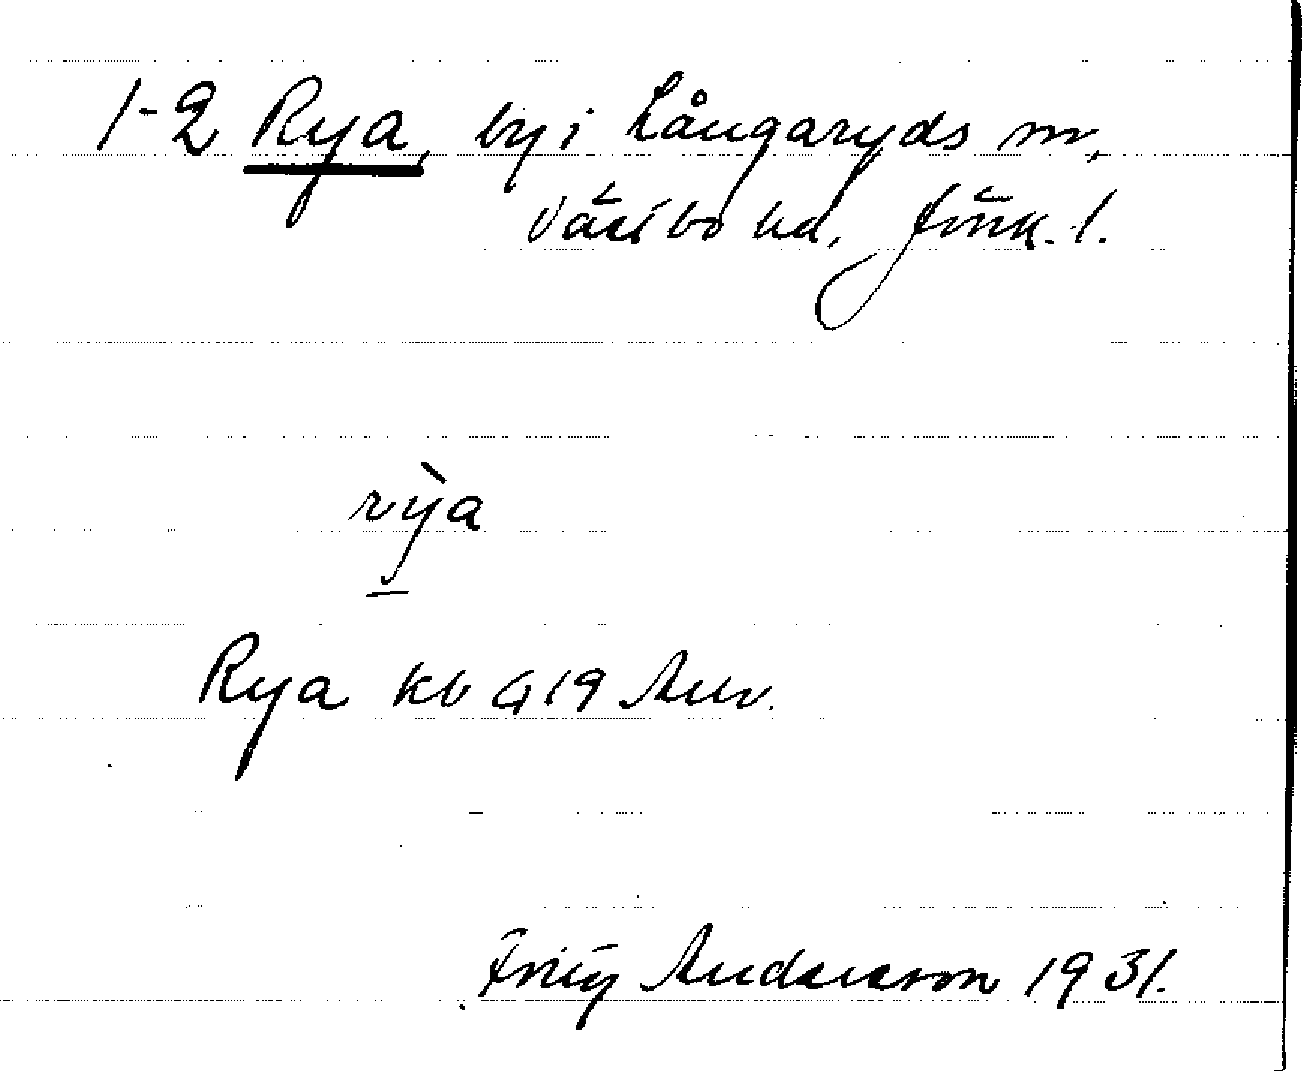 1-2 Rya, by i Långaryds sn,
Västbo hd, Jönk. l.
rỳa
Rya kb G 19 Anv.
Andersson 1931.